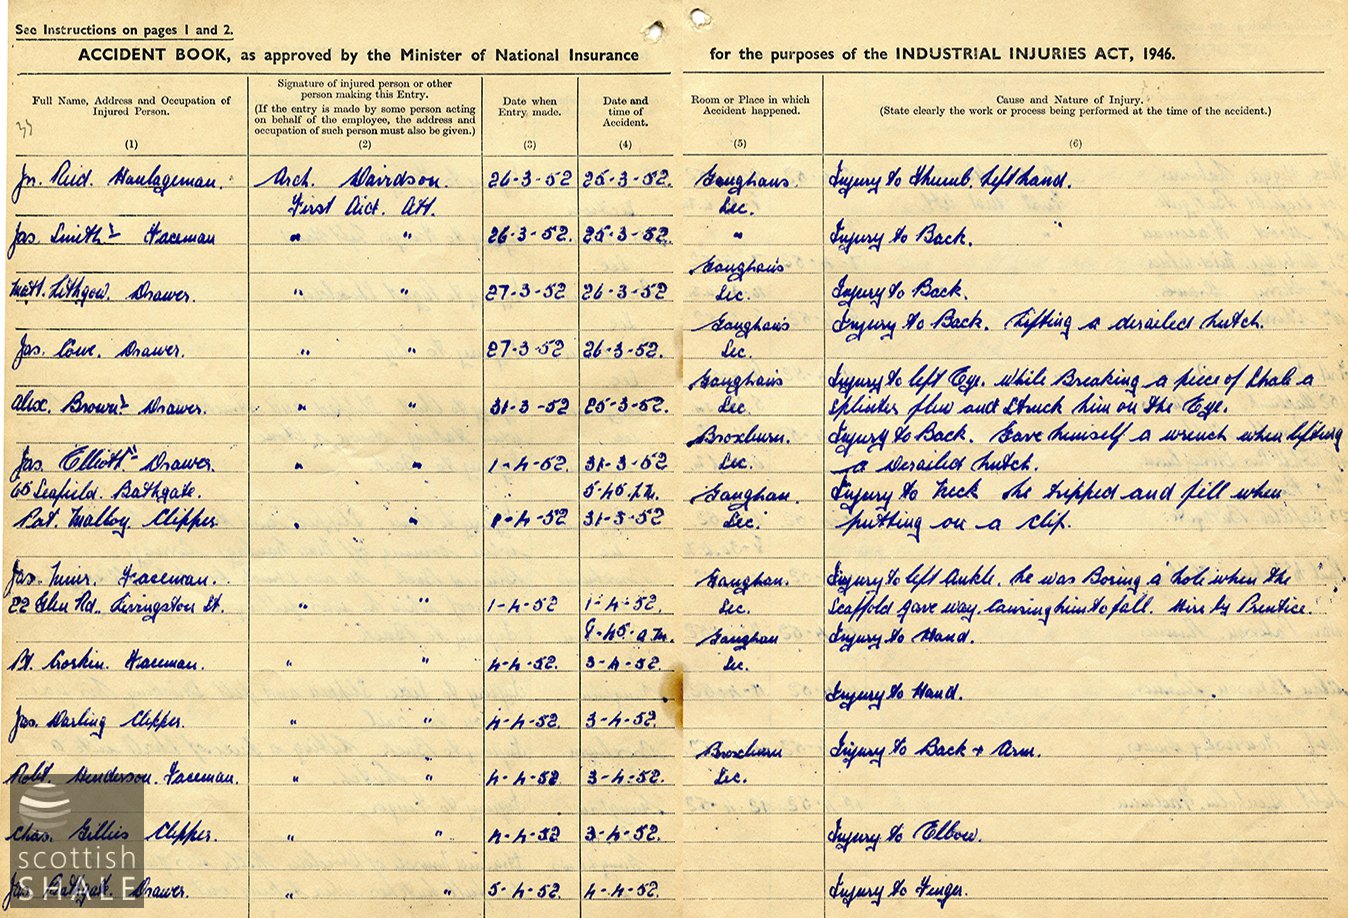 See Instructions on pages 1 and 2.
ACCIDENT BOOK, as approved by the Minister of National Insurance for the purposes of the INDUSTRIAL INJURIES ACT, 1946.
Full Name, Address and Occupation of
Injured Person.
(1)
Signature of injured person or other
person making this Entry.
(If the entry is made by some person acting
on behalf of the employee, the address and
occupation of such person must also be given.)
(2)
Date when
Entry made.
(3)
Date and
time of
Accident.
(4)
Room or Place in which
Accident happened.
(5)
Cause and Nature of Injury.
(State clearly the work or process being performed at the time of the accident.)
(6)
33
Jn. Reid. Haulageman. Arch. Davidson. 26-3-52 25-3-52. Gaughans Injury to Thumb. Left hand.
First Aid. Att. Sec.
Jas. Smith Faceman " " 26-3-52. 25-3-52. " Injury to Back.
Gaughans
Matt. Lithgow. Drawer. " " 27-3-52 26-3-52. Sec. Injury to Back.
Gaughans Injury to Back. Lifting a derailed hutch.
Jas. Cowe. Drawer. " " 27-3-52 26-3-52. Sec.
Gaughans Injury to left Eye. while Breaking a piece of Shale a
Alex. Brown Drawer. " " 31-3-52 25-3-52. Sec splinter flew and struck him on the Eye.
Broxburn. Injury to Back. Gave himself a wrench when lifting
Jas. Elliott Drawer. " " 1-4-52 31-3-52 Sec. a derailed hutch.
65 Seafield. Bathgate. 5-45 P.M. Gaughan. Injury to Neck he tripped and fell when
Pat. Malloy. Clipper " " 1-4-52 31-3-52 Sec. putting on a clip.
Jas. Muir. Faceman. Gaughan. Injury to left Ankle. he was Boring a hole when the
22 Glen Rd. Livingston St. " " 1-4-52 1-4-52. Sec. Scaffold gave way. Causing him to fall. Hire by Prentice.
8-45-a.m. Gaughan Injury to Hand.
Pt. Croskin. Faceman. " " 4-4-52. 3-4-52 Sec.
Injury to Hand.
Jas. Darling Clipper. " " 4-4-52. 3-4-52.
Broxburn Injury to Back + Arm.
Robt. Henderson. Faceman. " " 4-4-52 3-4-52. Sec.
Chas. Gillies Clipper. " " 4-4-52 3-4-52. Injury to Elbow.
Jas. Bathgate. Drawer. " " 5-4-52. 4-4-52. Injury to Finger.
scottish
SHALE